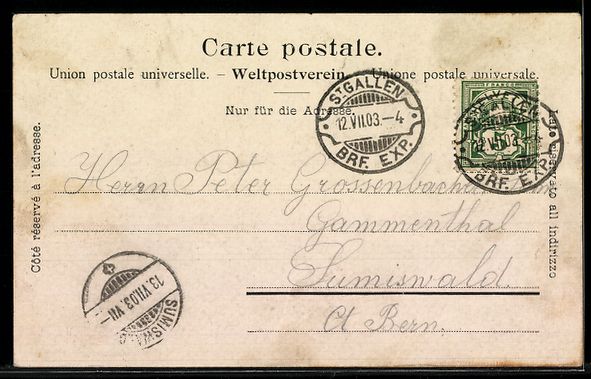 Carte postale.
Union postale universelle. – Weltpostverein. – Unione postale universale.
Nur für die Adresse.
Côté réservé à l'adresse.
Lato riservato all indirizzo
ST GALLEN
12.VII.03.–4
BRF. EXP.
FRANCO
ST GALLEN
12.VII.03.–4
BRF. EXP.
Herrn Peter Grossenbacher
Gammenthal
Sumiswald
Ct Bern.
13.VII.03.VII–
SUMISWALD